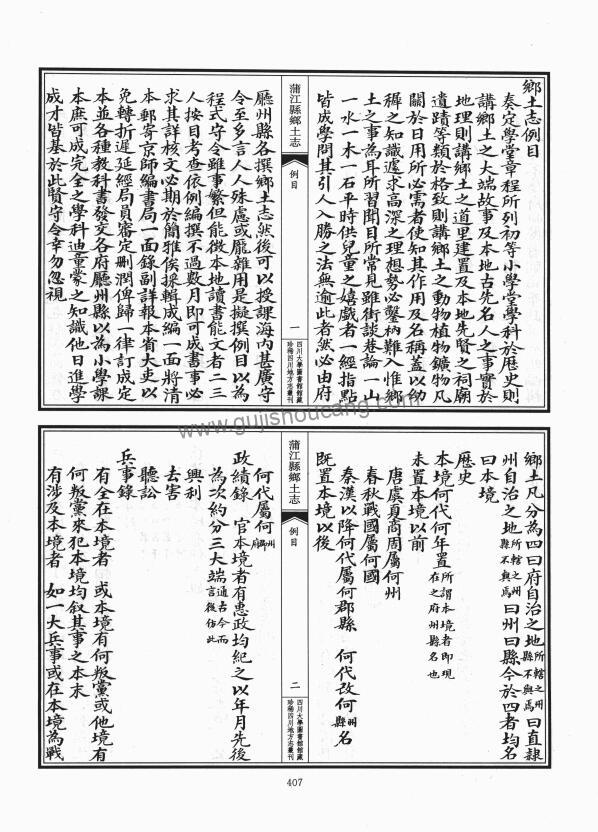 鄉土志例目
奏定學堂章程所列初等小學堂學科於歷史則
講鄉土之大端故事及本地古先名人之事實於
地理則講鄉土之道里建置及本地先賢之祠廟
遺蹟等類於格致則講鄉土之動物植物鑛物凡
關於日用所必需者使知其作用及名稱蓋以幼
穉之知識遽求高深之理想勢必鑿枘難入惟鄉
土之事為耳所習聞目所常見雖街談巷論一山
一水一木一石平時供兒童之嬉戲者一經指點
皆成學問其引人入勝之法無逾此者然必由府
蒲江縣鄉土志
例目
一
四川大學圖書館館藏
珍稀四川地方志叢刊
廳州縣各撰鄉土志然後可以授課海內甚廣守
令至多言人人殊慮或龐雜用是擬撰例目以為
程式守令雖事繁但能徵本地讀書能文者二三
人按目考查依例編撰不過數月即可成書事必
求其詳核文必期於簡雅俟採輯成編一面將清
本郵寄京師編書局一面錄副詳報本省大吏以
免轉折遲延經局員審定刪潤俾歸一律訂成定
本並各種教科書發交各府廳州縣以為小學課
本庶可成完全之學科迪童蒙之知識他日進學
成才皆基於此賢守令幸勿忽視
www.gujishoucang.com
鄉土凡分為四曰府自治之地所轄之州縣不與焉曰直隸
州自治之地所轄之縣不與焉曰州曰縣今於四者均名
曰本境
歷史
本境何代何年置所謂本境者即現在之府州縣名也
未置本境以前
唐虞夏商周屬何州
春秋戰國屬何國
秦漢以降何代屬何郡縣 何代改何州縣名
既置本境以後
蒲江縣鄉土志
例目
二
四川大學圖書館館藏
珍稀四川地方志叢刊
何代屬何州府
政績錄 官本境者有惠政均紀之以年月先後
為次約分三大端通古今而言後仿此
興利
去害
聽訟
兵事錄
有全在本境者 或本境有何叛黨或他境有
何叛黨來犯本境均叙其事之本末
有涉及本境者 如一大兵事或在本境為戰
407